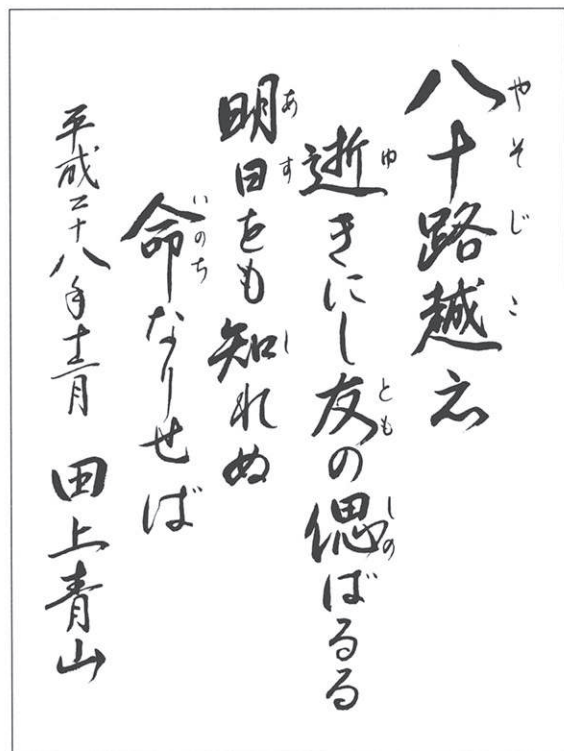 八十路越え
逝きにし友の偲ばるる
明日をも知れぬ
命なりせば
平成二十八年十二月 田上青山
やそじこ
ゆ とも しの
あす し
いのち